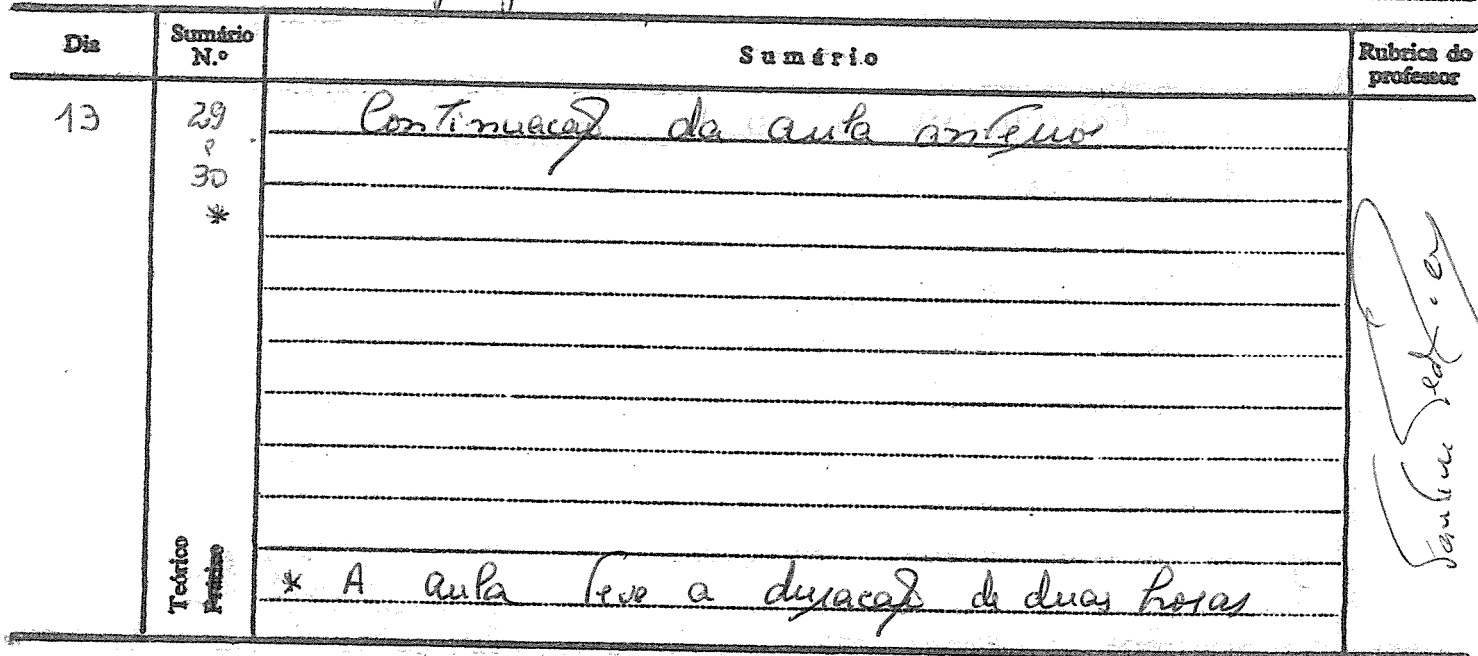 Dia Sumário N.º Sumário Rubrica do professor
13 29 Continuação da aula anterior
e
30
*
Teórico
Prático
* A aula teve a duração de duas horas